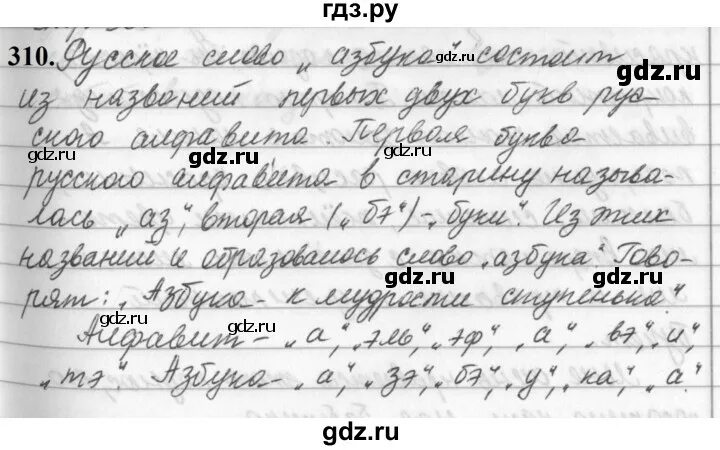 гдз.ру
310. Русское слово „азбука" состоит
из названий первых двух букв рус-
ского алфавита. Первая буква
русского алфавита в старину называ-
лась „аз", вторая („бэ") - „буки". Из этих
названий и образовалось слово „азбука". Гово-
рят: „Азбука - к мудрости ступенька".
Алфавит - „а", „эль", „эф", „а", „вэ", „и",
„тэ". Азбука - „а", „зэ", „бэ", „у", „ка", „а".
gdz.ru
gdz.ru
gdz.ru
gdz.ru
gdz.ru
gdz.ru
gdz.ru
gdz.ru
gdz.ru
gdz.ru
gdz.ru
gdz.ru
gdz.ru